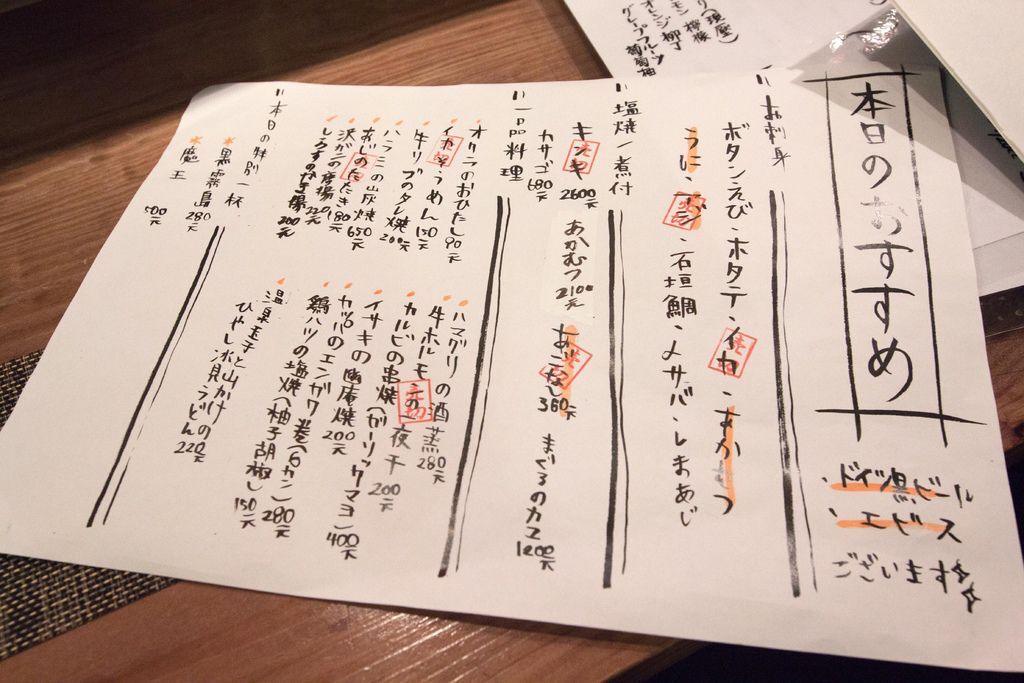 本日のおすすめ
ドイツ黒ビール
エビス
ございます☆☆
〃お刺身
ボタンえび・ホタテ・イカ・あかむつ
うに・アジ・石垣鯛・〆サバ・しまあじ
〃塩焼/煮付
キンキ 2600元 あかむつ 2100元 あこなし 360元 まぐろのカマ 1200元
カサゴ 680元
〃一品料理
オクラのおひたし 90元
イカそうめん 150元
牛リブのタレ焼 200元
ハラミの炭焼 650元
あじのたたき 180元
沢ガニの唐揚 180元
しらすのかき揚 200元
ハマグリの酒蒸 280元
牛ホルモンの一夜干 200元
カルビの串焼(ガーリックマヨ) 400元
イサキの幽庵焼 200元
カツオのエンガワ巻(6カン) 280元
鶏ハツの塩焼(柚子胡椒) 150元
温泉玉子と山かけの
ひやし氷見うどん 220元
〃本日の特別一杯
黒霧島 280元
魔王 500元
り(現壓)
モン 檸檬
オレンジ 柳丁
グレープフルーツ 葡萄柚